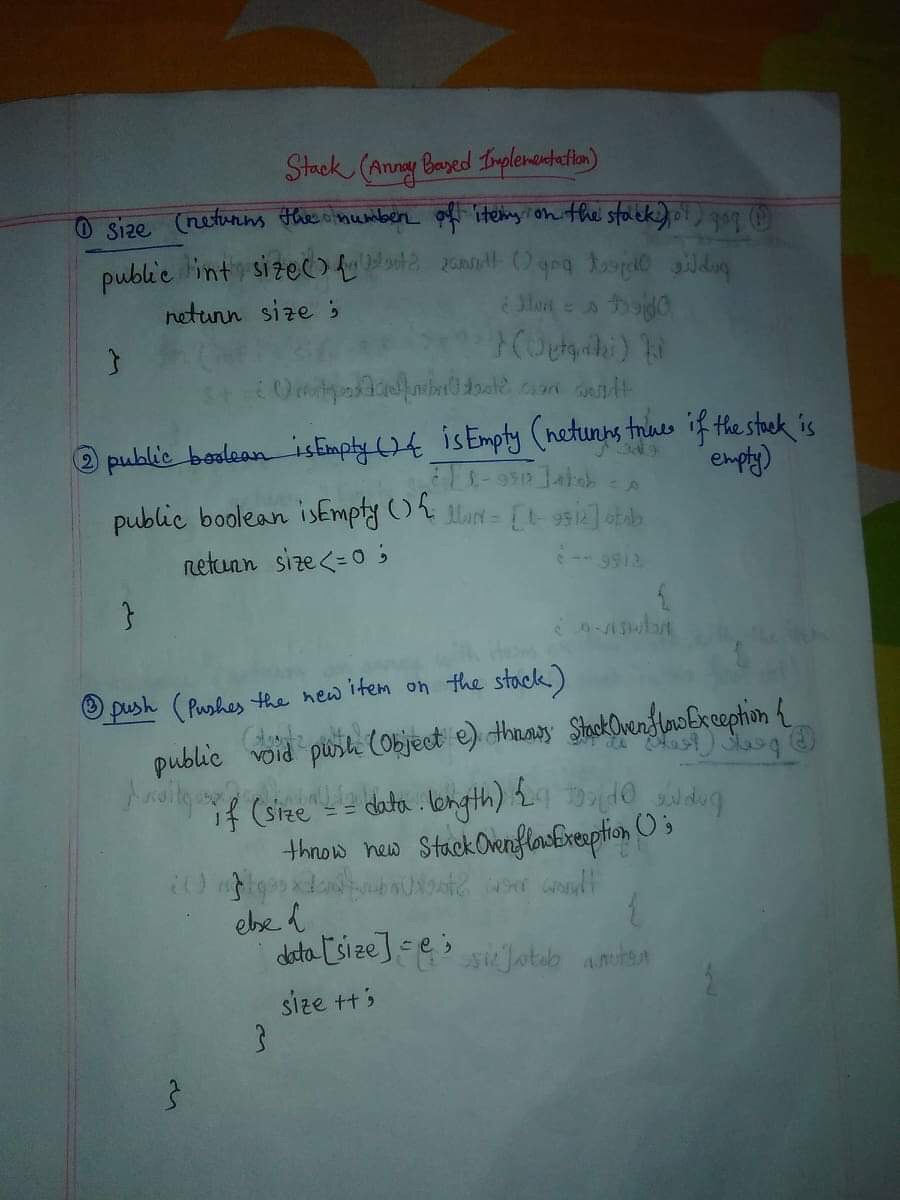 Stack (Array Based Implementation)
① size (returns the number of items on the stack)
public int size() {
return size ;
}
② public boolean isEmpty () { isEmpty (returns true if the stack is
empty)
public boolean isEmpty () {
return size <= 0 ;
}
③ push (Pushes the new item on the stack)
public void push (Object e) throws StackOverflowException {
if (size == data . length) {
throw new StackOverflowException () ;
}
else {
data [size] = e ;
size ++ ;
}
}